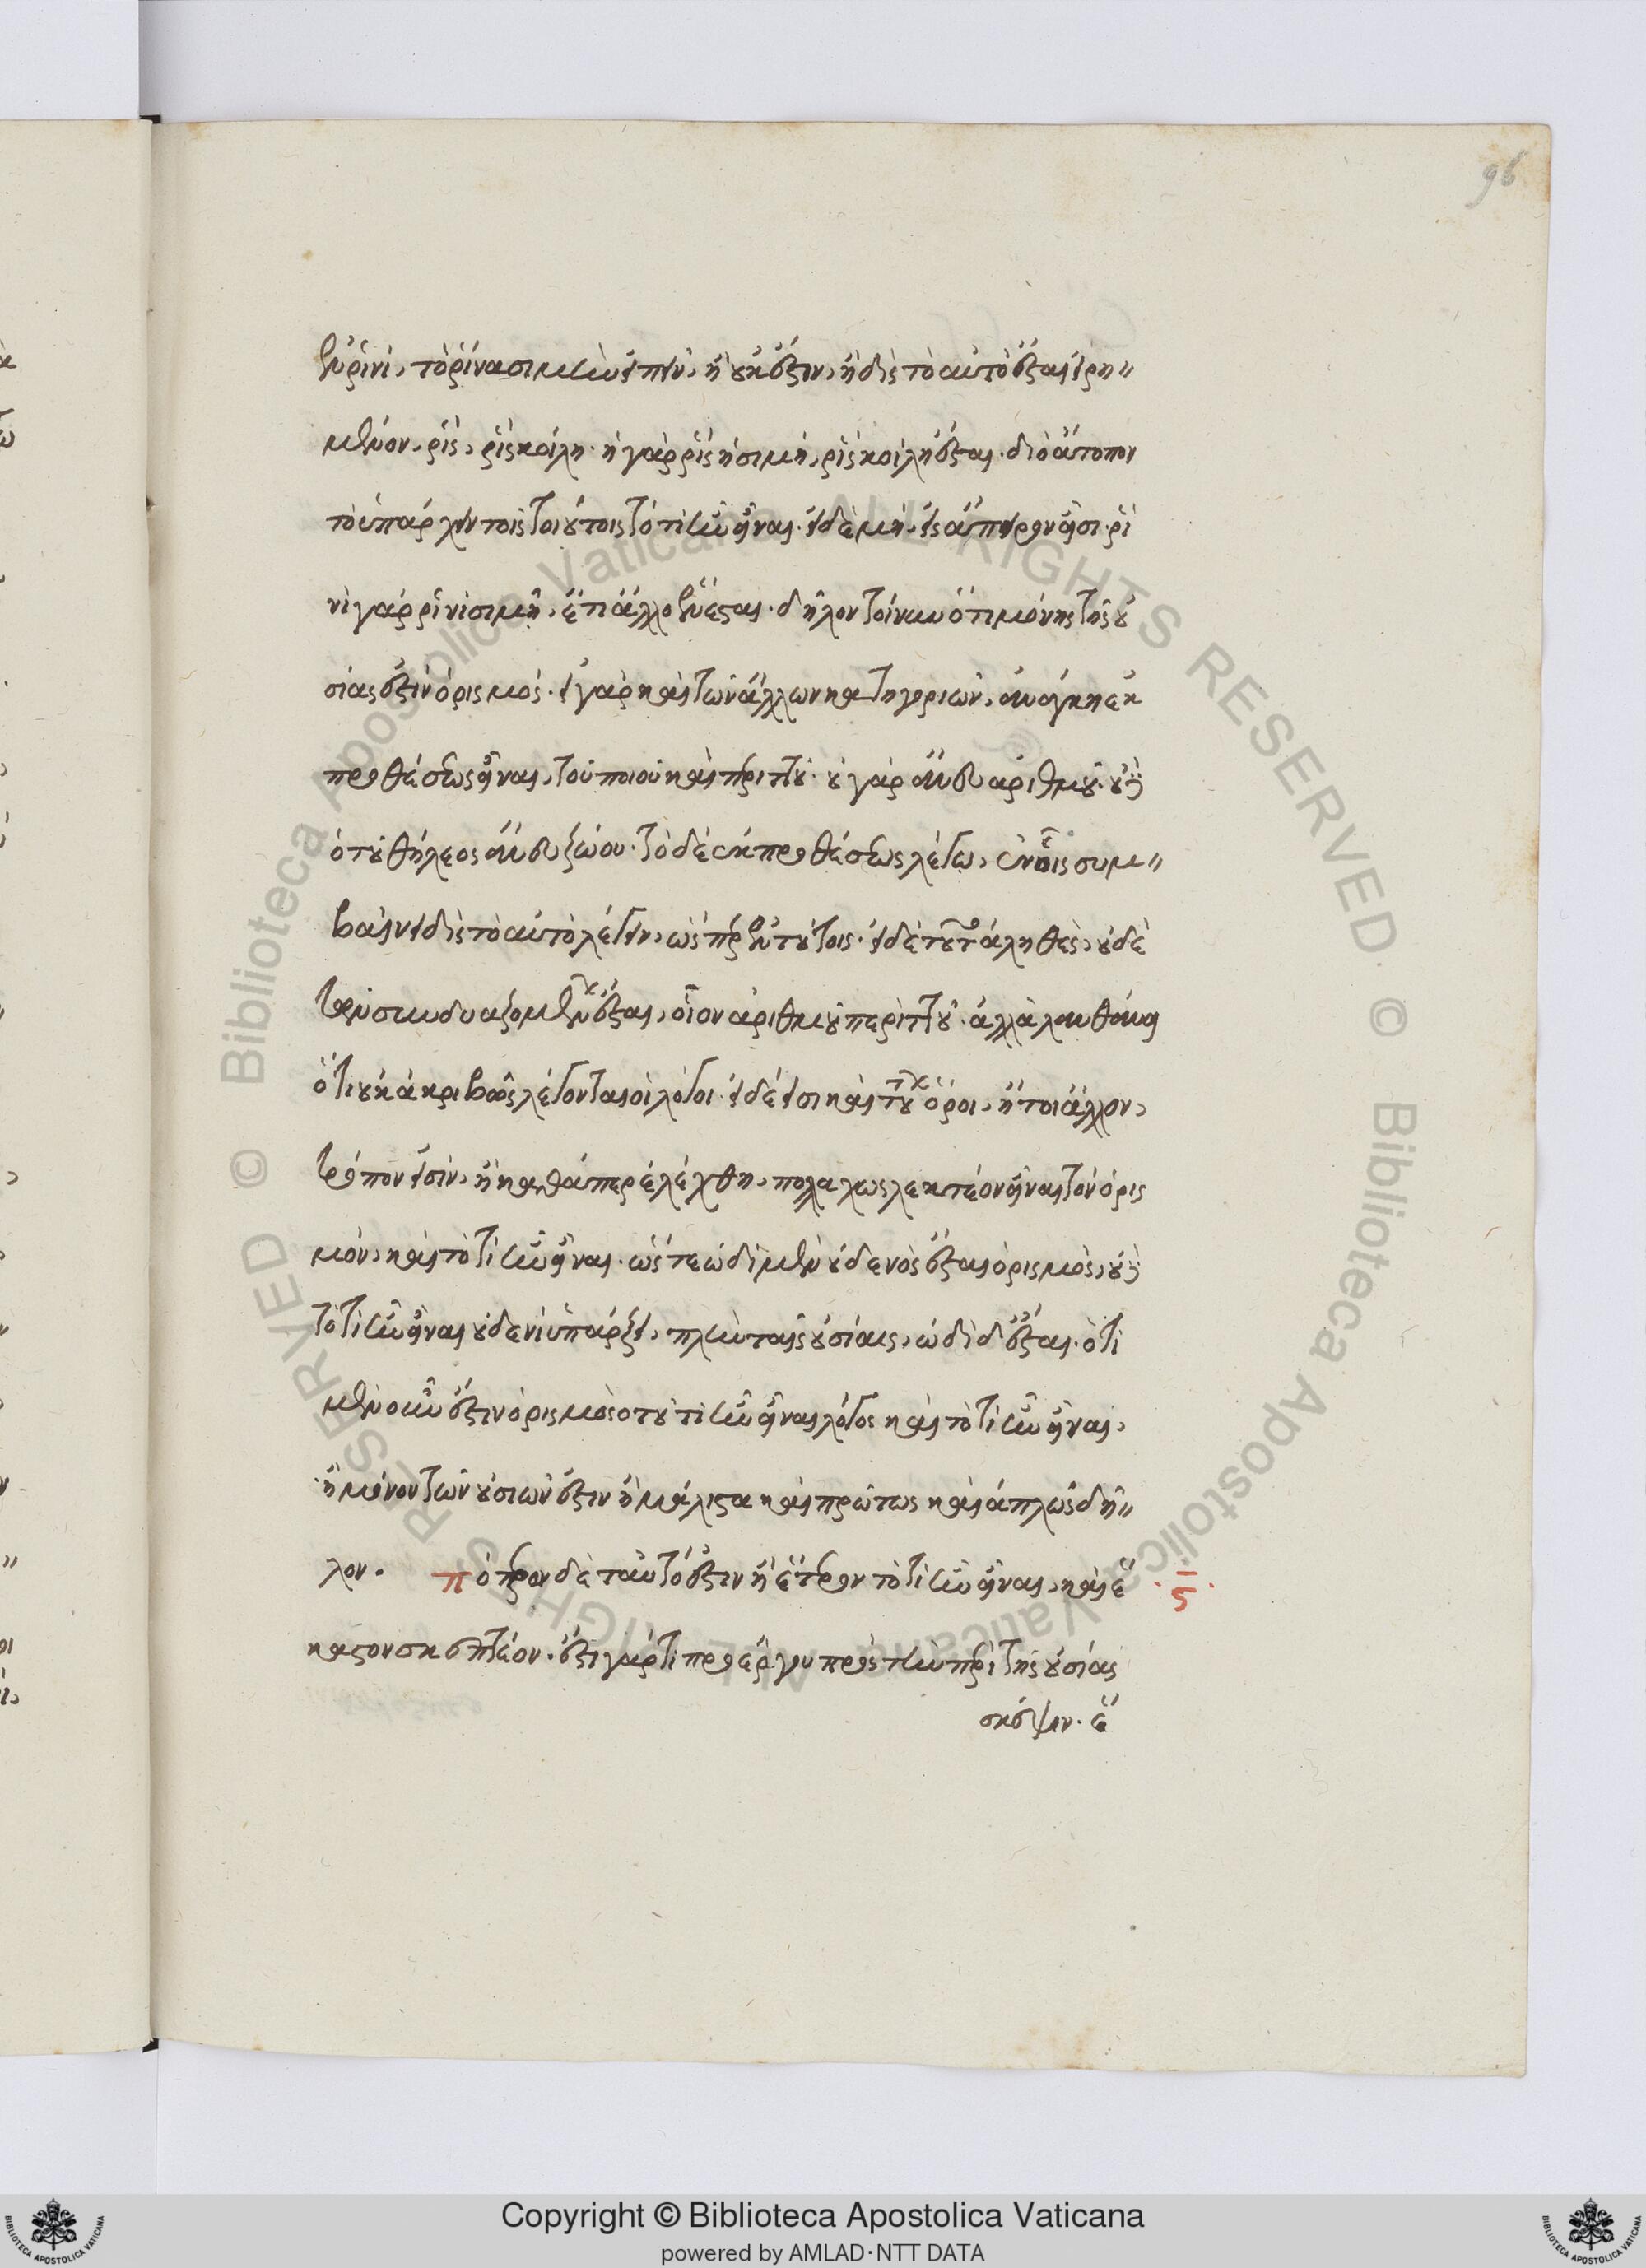 96
ἐν ῥινί, τὸ ῥῖνα σιμὴν εἰπεῖν, ἢ οὐκ ἔστιν, ἢ δὶς τὸ αὐτὸ ἔσται εἰρη〃
μένον, ῥὶς, ῥὶς κοίλη. ἡ γὰρ ῥὶς ἡ σιμὴ, ῥὶς κοίλη ἔσται. διὸ ἄτοπον
τὸ ὑπάρχειν τοῖς τοιούτοις τὸ τί ἦν εἶναι. εἰ δὲ μὴ, εἰς ἄπειρον εἶσι. ῥι
νὶ γὰρ ῥινὶ σιμῇ, ἔτι ἄλλο ἐνέσται. δῆλον τοίνυν ὅτι μόνης τῆς οὐ
σίας ἐστὶν ὁρισμός. εἰ γὰρ καὶ τῶν ἄλλων κατηγοριῶν, ἀνάγκη ἐκ
προθέσεως εἶναι, τοῦ ποιοῦ καὶ περιττοῦ. οὐ γὰρ ἄνευ ἀριθμοῦ. οὐδὲ
ὁ τοῦ θήλεος ἄνευ ζώου. τὸ δὲ ἐκ προθέσεως λέγω, ἐν οἷς συμ〃
βαίνει δὶς τὸ αὐτὸ λέγειν, ὥσπερ ἐν τούτοις. εἰ δὲ τοῦτο ἀληθὲς, οὐδὲ
συνδυαζομένων ἔσται, οἷον ἀριθμοῦ περιττοῦ. ἀλλὰ λανθάνει
ὅτι οὐκ ἀκριβῶς λέγονται οἱ λόγοι. εἰ δέ εἰσι καὶ τούτων ὅροι, ἤτοι ἄλλον,
τρόπον εἰσὶν, ἢ καθάπερ ἐλέχθη, πολλαχῶς λεκτέον εἶναι τὸν ὁρισ
μὸν, καὶ τὸ τί ἦν εἶναι. ὥστε ὡδὶ μὲν οὐδενὸς ἔσται ὁρισμὸς, οὐδὲ
τὸ τί ἦν εἶναι οὐδενὶ ὑπάρξει, πλὴν ταῖς οὐσίαις, ὡδὶ δ' ἔσται. ὅτι
μὲν οὖν ἐστὶν ὁρισμὸς ὁ τοῦ τί ἦν εἶναι λόγος καὶ τὸ τί ἦν εἶναι,
ἢ μόνον τῶν οὐσιῶν ἐστιν ἢ μάλιστα καὶ πρώτως καὶ ἁπλῶς δῆ〃
λον. πότερον δὲ ταὐτό ἐστιν ἢ ἕτερον τὸ τί ἦν εἶναι, καὶ ἕ ·ϛ·
καστον σκεπτέον. ἔστι γάρ τι προέργου πρὸς τὴν περὶ τῆς οὐσίας
σκέψιν. ἕ
Copyright © Biblioteca Apostolica Vaticana
powered by AMLAD·NTT DATA